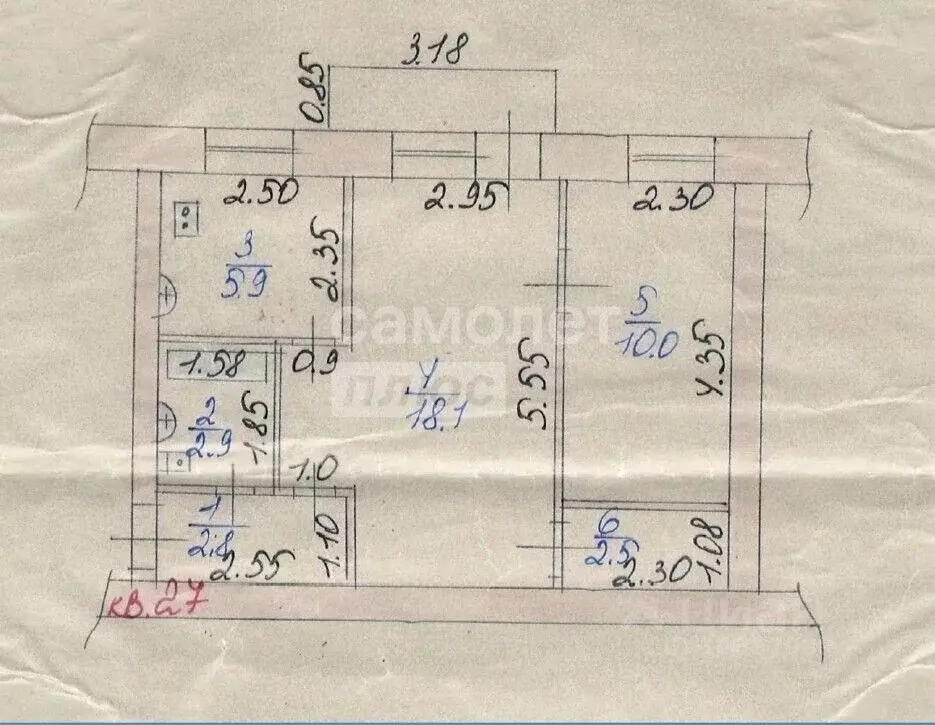 3.18
0.85
2.50
2.95
2.30
3
5.9
2.35
самолет
плюс
5
10.0
4.35
1.58
0.9
4
18.1
5.55
2
2.9
1.85
1.0
1
2.8
2.55
1.10
6
2.5
2.30
1.08
кв. 27